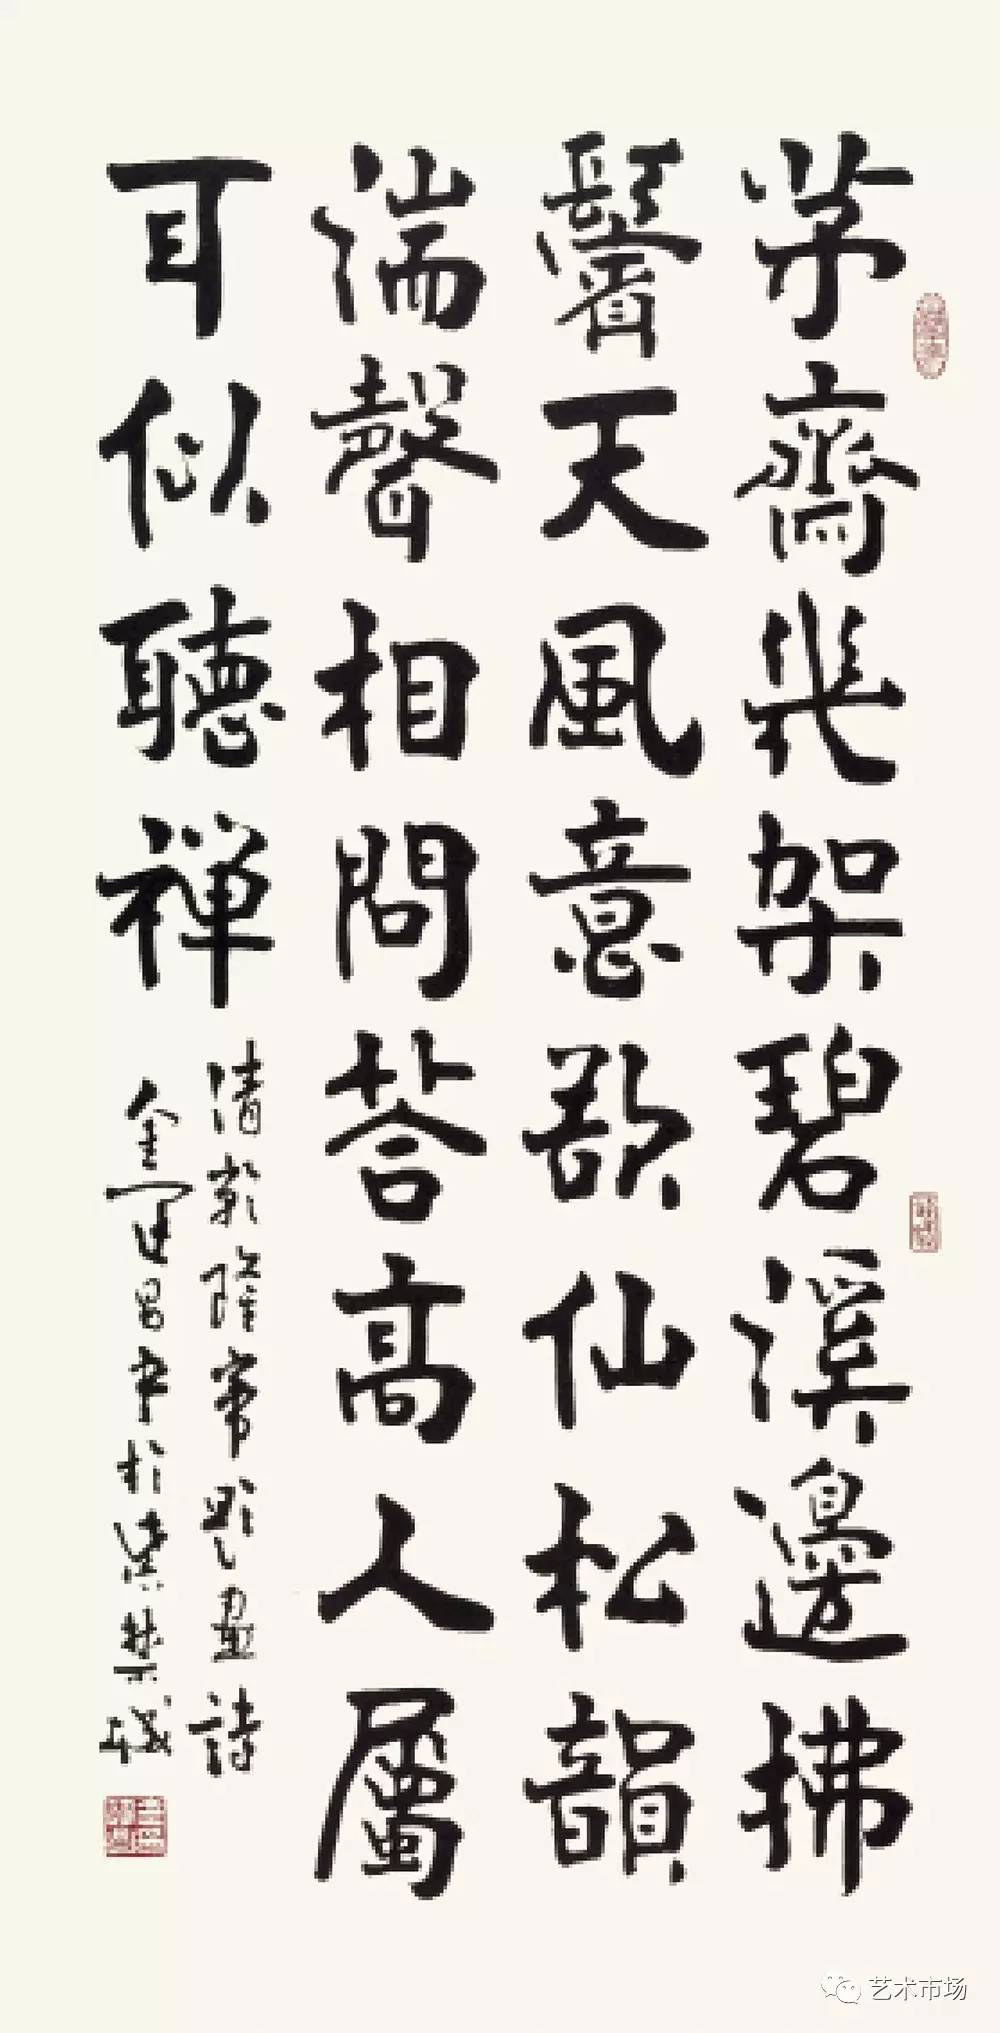 茅齋幾架碧溪邊拂
鬢天風意欲仙松韻
湍聲相問荅高人屬
耳似聽禪
清乾隆帝題畫詩
金運昌書於紫禁城
艺术市场